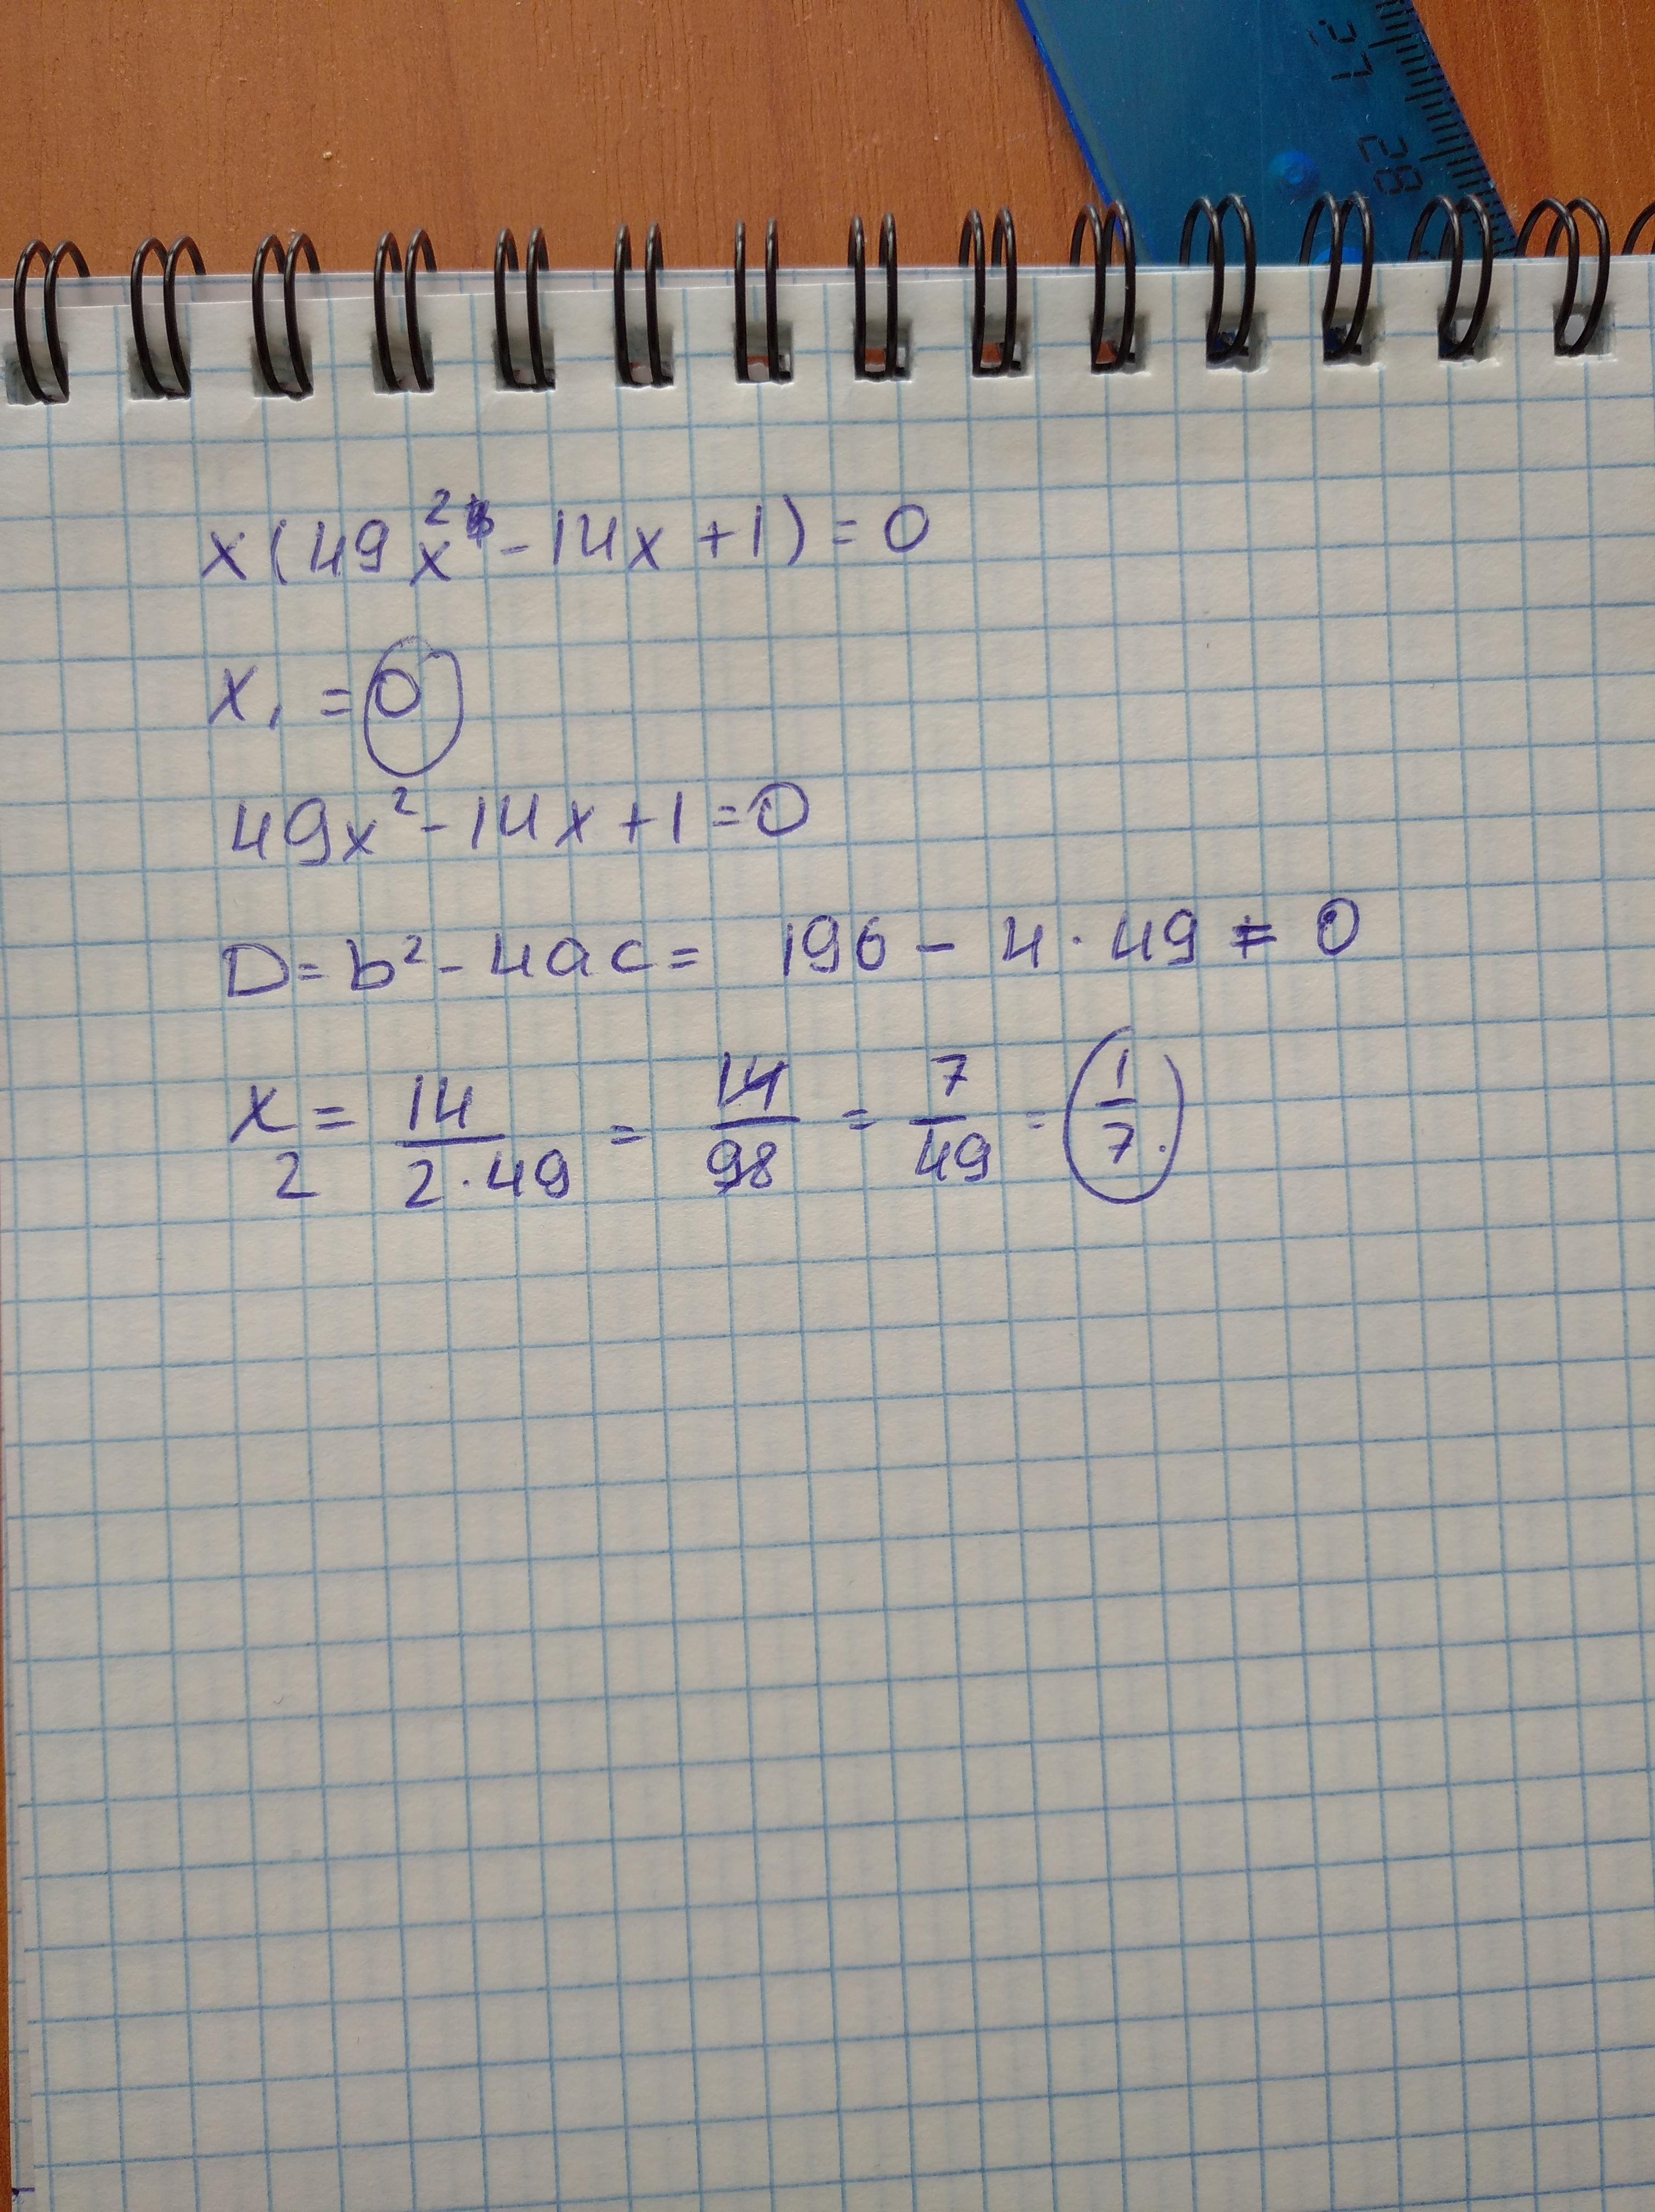 27 28
x(49x²-14x+1)=0
x₁=0
49x²-14x+1=0
D=b²-4ac= 196-4·49=0
x₂=14/(2·49)=14/98=7/49=1/7.